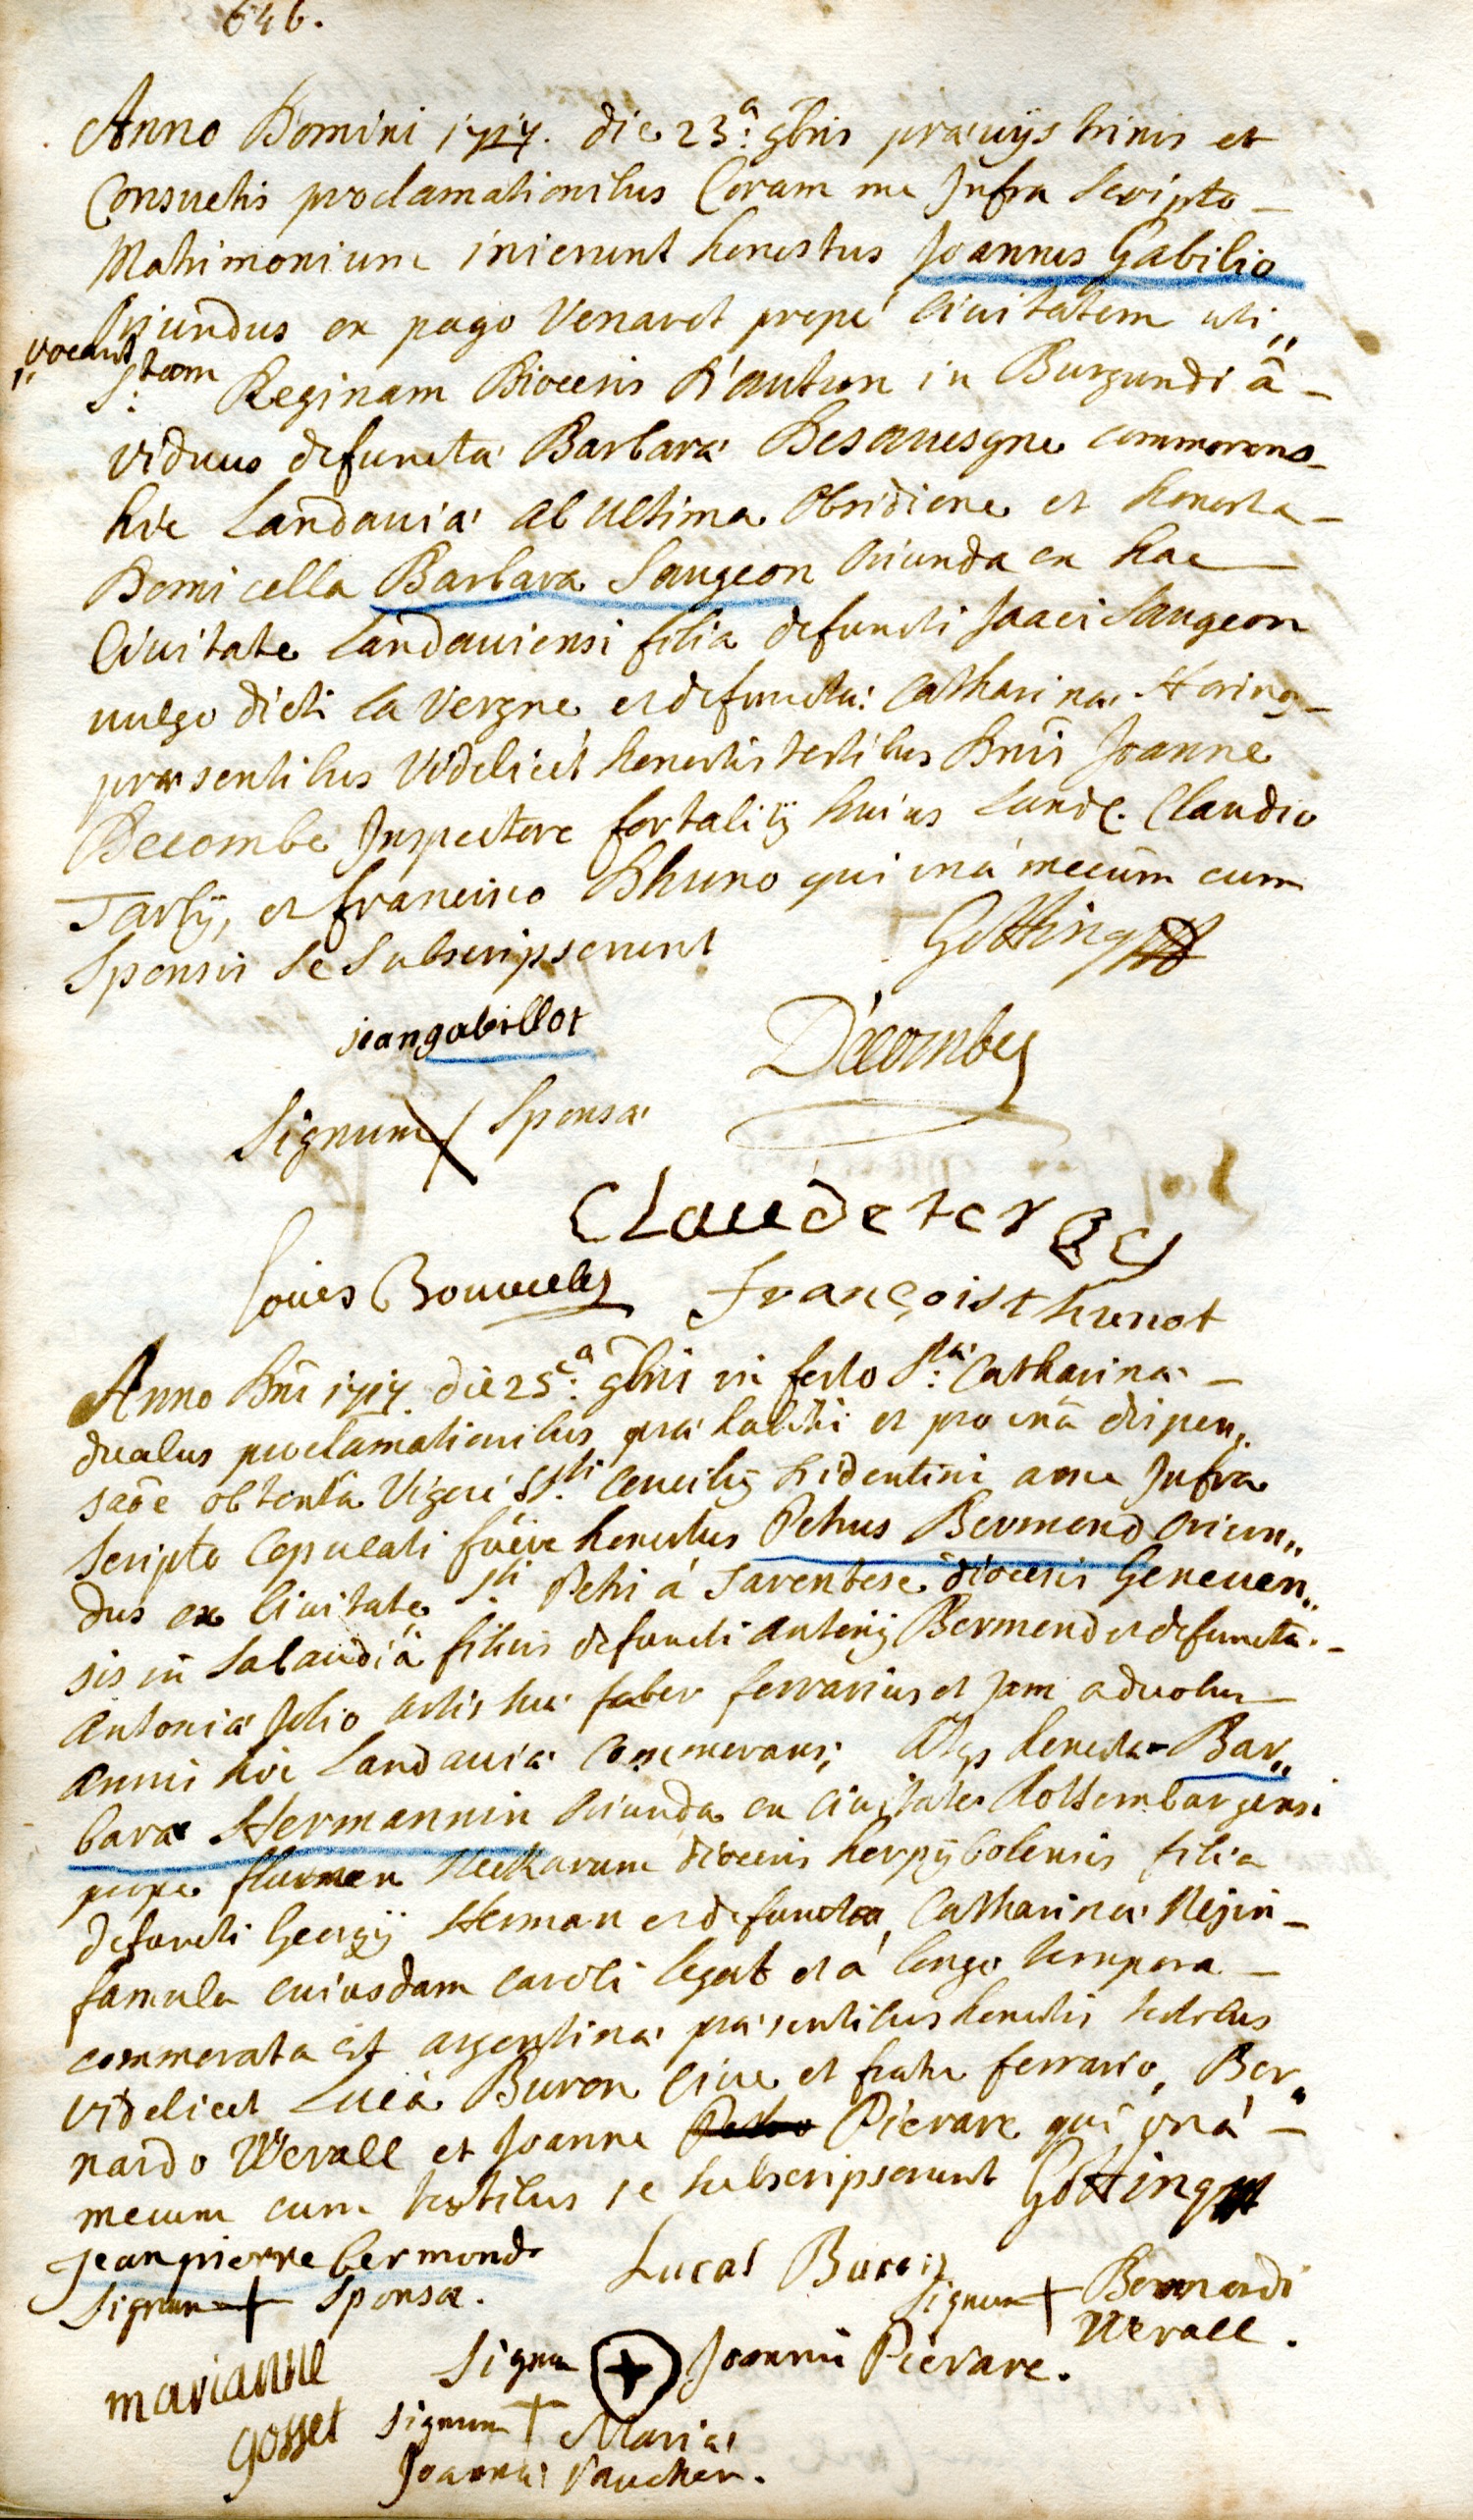 646.
Anno Domini 1717. die 23.a 9bris praeuijs trinis et
Consuetis proclamationibus Coram me Infra Scripto
Matrimonium inierunt honestus Joannes Gabilio
Oriundus ex pago Venaret propè Ciuitatem uti
"vocant
S:tam Reginam Dioecesis D'autun in Burgundiâ
viduus defunctae Barbarae Besauuesgne commorans
hic Landauiae ab ultima Obsidione et honesta
Domicella Barbara Saugeon Oriunda ex hac
Ciuitate Landauiensi filia defuncti Jsaaci Saugeon
uulgo dicti la Vergne et defunctae Catharinae Haring
praesentibus videlicèt honestis testibus Dnis Joanne
Decombe Inspectore fortalitij huius Land. Claudio
Tarbij, et francisco Thuno qui unà mecum cum
Sponsis se Subscripserunt Götting
jean gabillot
Decombes
Signum Sponsae
Claude ter
Louis Bouueles
françois thunot
Anno Dni 1717. die 25.a 9bris in festo S:tae Catharinae
duabus proclamationibus prae habitis et pro unâ dispen,,
saõe obtentâ Vigore SS:ti Concilij tridentini a me Infra
Scripto Copulati fuêre honestus Petrus Bermond oriun,,
dus ex Ciuitate S:ti Petri à Tarentese diocesis Geneuen,,
sis in Sabaudiâ filius defuncti Antonij Bermond et defunctae
Antoniae Jolio artis suae faber ferrarius et jam a duobus
annis hic Landauiae Commorans; Atq honesta Bar,,
bara Hermannin Oriunda ex Ciuitate Rottemburgensi
prope flumen Neckarum diocesis herpijbolensis filia
defuncti Georgij Herman et defunctae Catharinae Nejin
famula cuiusdam caroli legat et à longo tempore
commorata est argentinae praesentibus honestis testibus
videlicet Lucâ Buron Ciue et fratre ferrario, Ber,,
nardo Werall et Joanne Pierare qui unà
mecum cum testibus se subscripserunt Götting
jean pierre bermond
Lucas
Signum + Sponsae.
Signum + Bernardi
Werall.
Signum + Joannis Pierare.
marianne
gosset
Signum + Mariae
Joannae Vaucher.